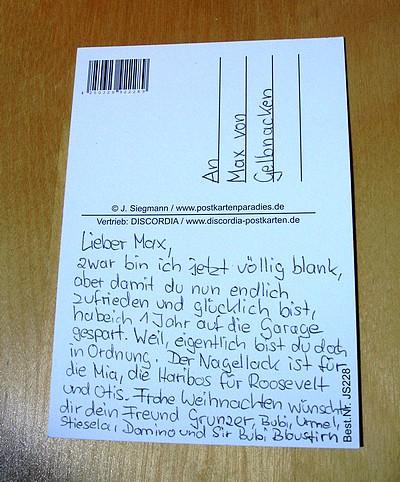 An
Max von
Gelbnacken
© J. Siegmann / www.postkartenparadies.de
Vertrieb: DISCORDIA / www.discordia-postkarten.de
Lieber Max,
zwar bin ich jetzt völlig blank,
aber damit du nun endlich
zufrieden und glücklich bist,
habe ich 1 Jahr auf die Garage
gespart. Weil, eigentlich bist du doch
in Ordnung. Der Nagellack ist für
die Mia, die Haribos für Roosevelt
und Otis. Frohe Weihnachten wünscht
dir dein Freund Grunzer, Bubi, Urmel,
Stiesela, Domino und Sir Bubi Blaustirn
Best.Nr. JS228